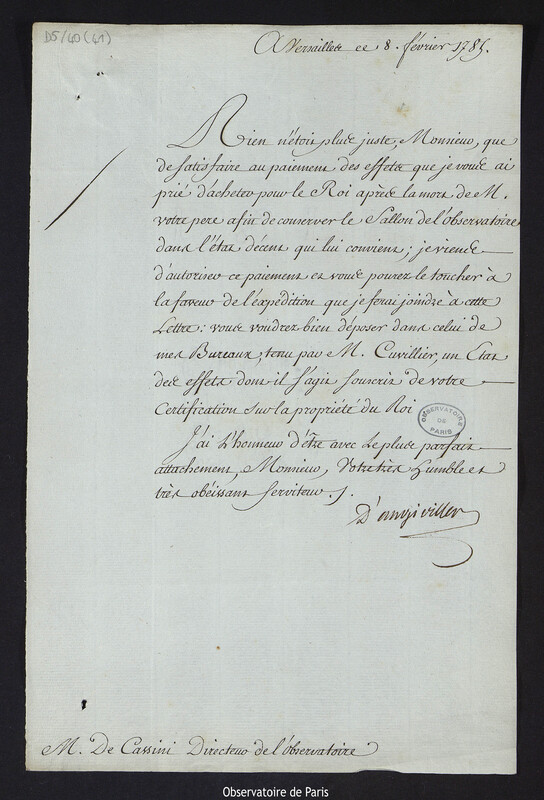 D5/40 (41)
A Versailles ce 8. février 1785.
Rien n'étoit plus juste, Monsieur, que
de satisfaire au paiement des effets que je vous ai
prié d'acheter pour le Roi après la mort de M.
votre pere afin de conserver le Sallon de l'Observatoire
dans l'état décent qui lui convient; je viens
d'autoriser ce paiement et vous pourez le toucher à
la faveur de l'expédition que je ferai joindre à cette
Lettre: vous voudrez bien déposer dans celui de
mes Bureaux, tenu par M. Cuvillier, un Etat
des effets dont il s'agit souscrit de votre
Certification sur la propriété du Roi
OBSERVATOIRE
DE
PARIS
J'ai L'honneur d'être avec Le plus parfait
attachement, Monsieur, Votre très humble et
très obéissant serviteur.
D'angiviller
M. De Cassini Directeur de l'Observatoire
Observatoire de Paris